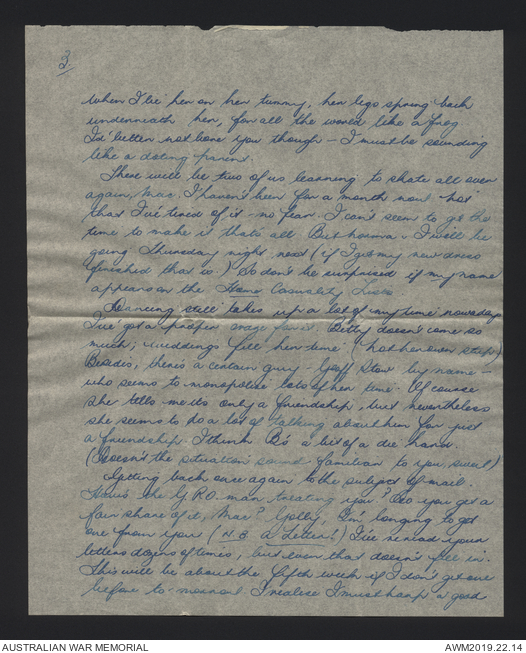 3.
when I lie her on her tummy, her legs spring back
underneath her, for all the world like a frog
I'd better not bore you though – I must be sounding
like a doting parent.
There will be two of us learning to skate all over
again, Mac. I haven't been for a month now – not
that I've tired of it – no fear. I can't seem to get the
time to make it that's all But I will be
going Thursday night next (if I get my new dress
finished that is) So don't be surprised if my name
appears on the Home Casualty Lists
Dancing still takes up a lot of my time nowadays
I've got a proper craze for it. Betty doesn't come so
much; weddings fill her time (not her own silly)
Besides, there's a certain guy – Geoff Stow by name –
who seems to monopolise lots of her time. Of course
she tells me its only a friendship, but nevertheless
she seems to do a lot of talking about him for just
a friendship. I think B's a bit of a die hard.
(Doesn't the situation sound familiar to you, sweet)
Getting back once again to the subject of mail.
How's the G.P.O. man treating you? Do you get a
fair share of it, Mac? Golly, I'm longing to get
one from you (N.B. a Letter!) I've reread your
letters dozens of times, but even that doesn't fill in.
This will be about the fifth week if I don't get one
before to-morrow. I realise I must harp a good
AUSTRALIAN WAR MEMORIAL
AWM2019.22.14